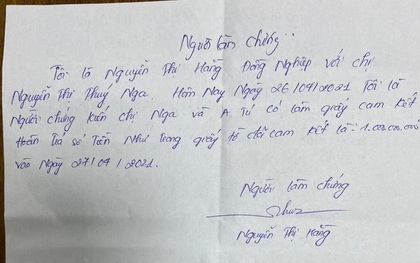 Người làm chứng
Tôi là Nguyễn Thị Hằng Đồng Nghiệp với chị
Nguyễn Thị Thuý Nga. Hôm Nay Ngày 26/04/2021 Tôi là
Người chứng kiến chị Nga và A Tú có làm giấy cam kết
Hoàn Trả số Tiền Như trong giấy tờ đã cam kết là: 1.000.000.000
vào Ngày 27/04/2021.
Người làm chứng
Nguyễn Thị Hằng